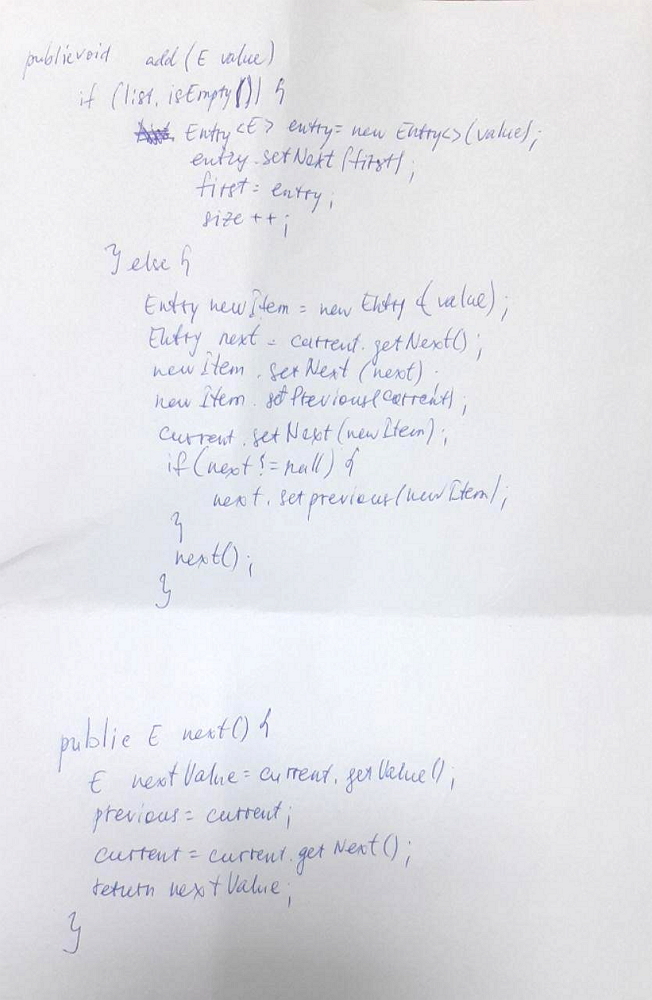 public void add (E value)
if (list.isEmpty()) {
Entry<E> entry = new Entry<>(value);
entry.setNext(first);
first = entry;
size++;
} else {
Entry newItem = new Entry (value);
Entry next = current.getNext();
newItem.setNext(next).
newItem.setPrevious(current);
current.setNext(newItem);
if (next != null) {
next.setprevious(newItem);
}
next();
}
public E next() {
E nextValue = current.getValue();
previous = current;
current = current.getNext();
return nextValue;
}